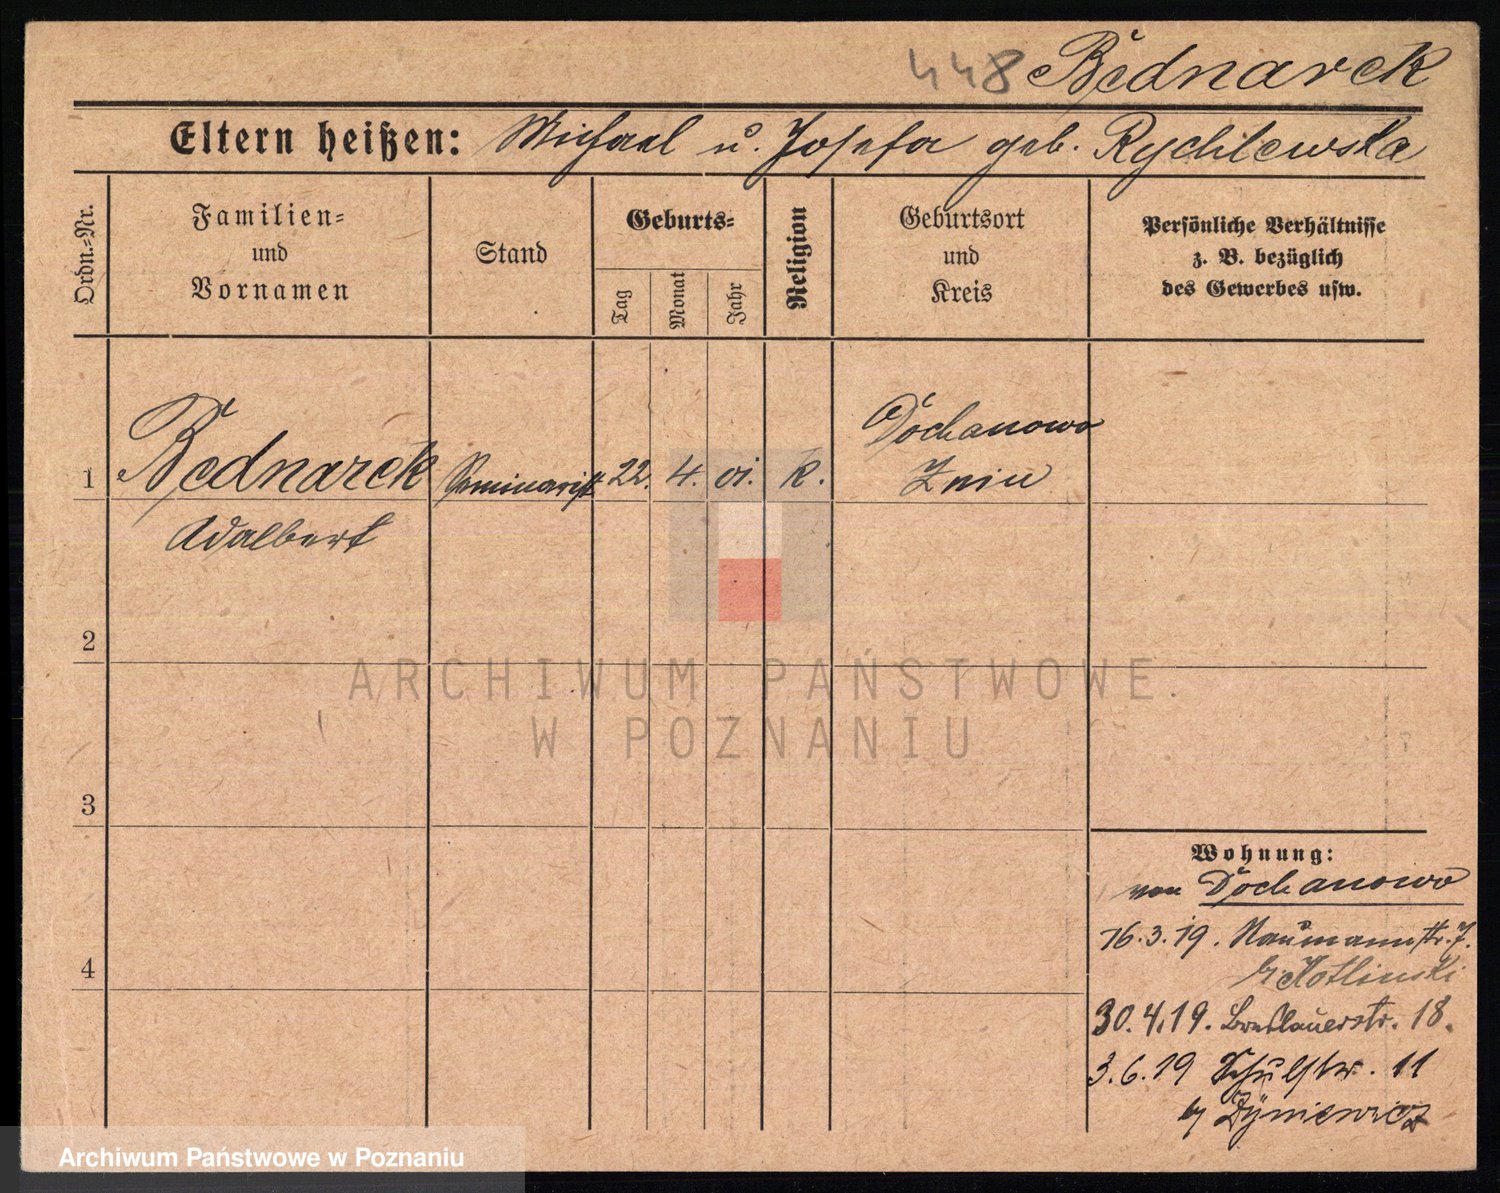 448 Bednarek
Eltern heißen: Michael u. Josefa geb. Rychlewska
Ordn.-Nr.
Familien-
und
Vornamen
Stand
Geburts-
Tag
Monat
Jahr
Religion
Geburtsort
und
Kreis
Persönliche Verhältnisse
z. B. bezüglich
des Gewerbes usw.
1 Bednarek Seminarist 22. 4. 01. k. Dochanowo
Znin
Adalbert
2
3
4
ARCHIWUM PAŃSTWOWE
W POZNANIU
Wohnung:
von Dochanowo
16.3.19. Naumannstr. 7.
b/ Kotlinski
30.4.19. Breslauerstr. 18.
3.6.19 Schulstr. 11
by Dyniewicz
Archiwum Państwowe w Poznaniu